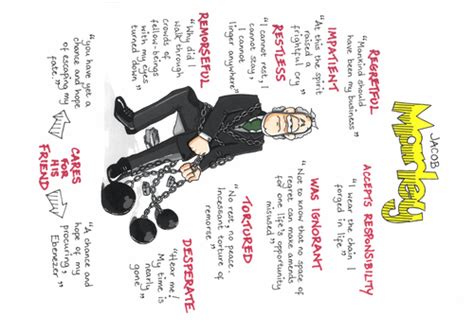 JACOB
Marley
REGRETFUL
"Mankind should
have been my business"
IMPATIENT
"At this the spirit
raised a
frightful cry"
RESTLESS
"I cannot rest, I
cannot stay,
I cannot
linger anywhere"
REMORSEFUL
"Why did I
walk through
crowds of
fellow-beings
with my eyes
turned down"
ACCEPTS RESPONSIBILTY
"I wear the chain I
forged in life"
WAS IGNORANT
"Not to know that no space of
regret can make amends
for one life's opportunity
misused"
TORTURED
"No rest, no peace.
Incessant torture of
remorse"
DESPERATE
"Hear me!
My time is
nearly
gone"
CARES
FOR
HIS
FRIEND
"you have yet a
chance and hope
of escaping my
fate."
"A chance and
hope of my
procuring,
Ebenezer"